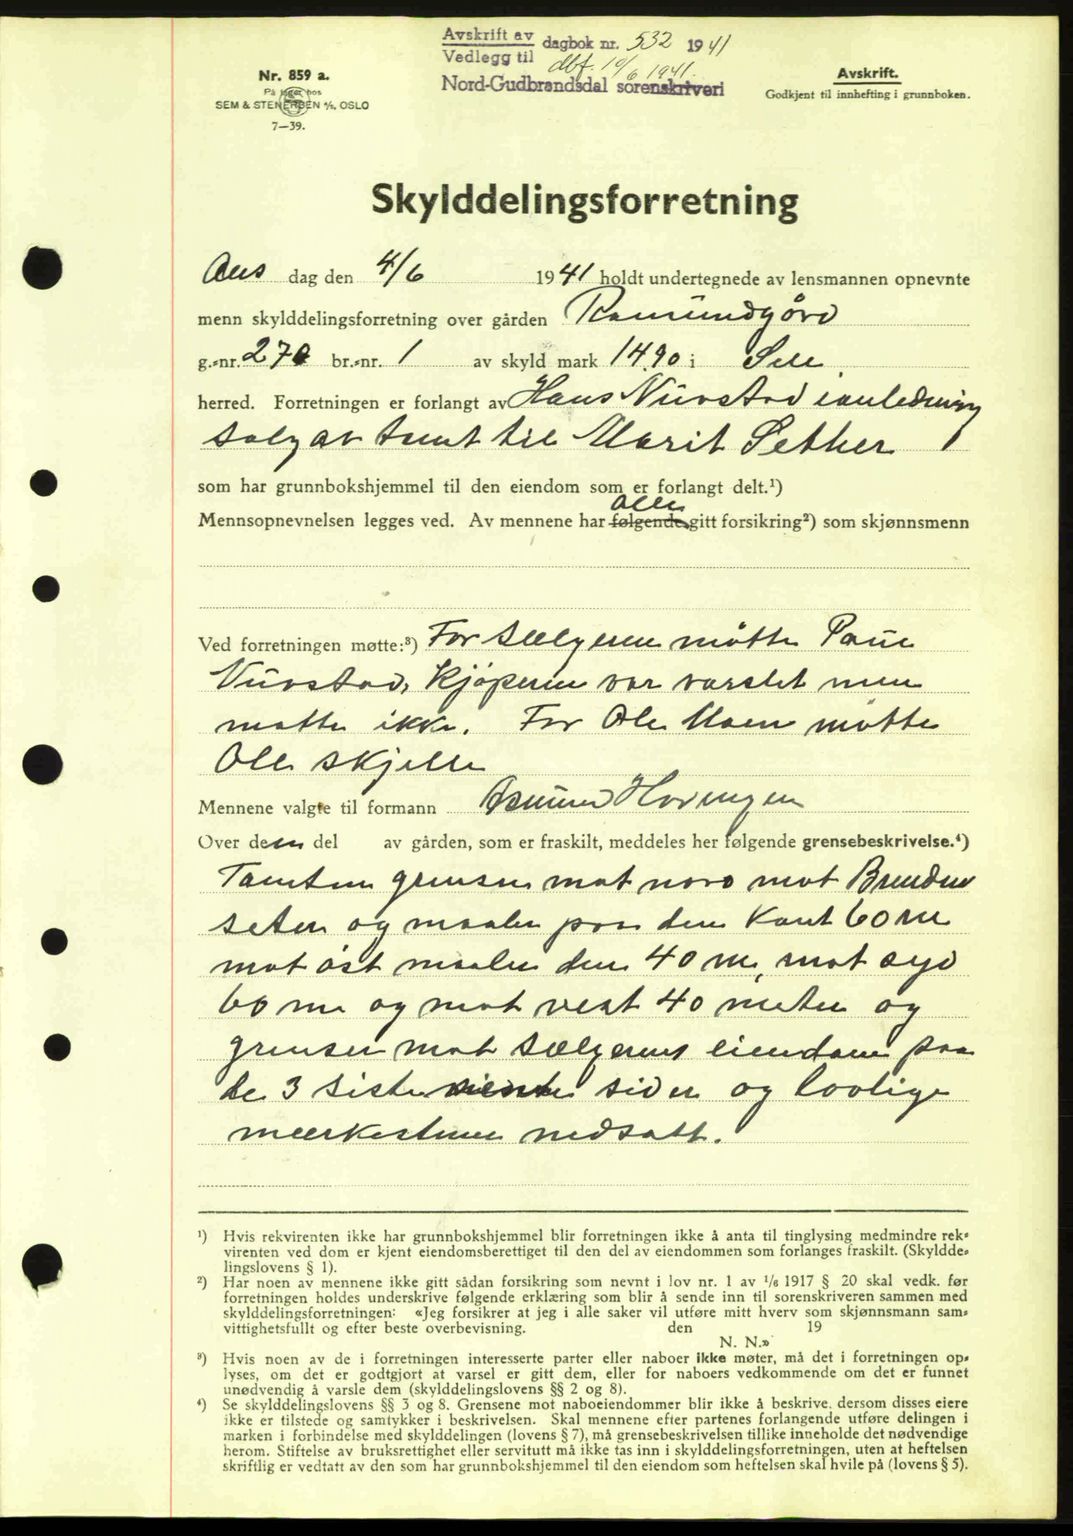 Avskrift av
Vedlegg til
dagbok nr. 532 1941
dbf. 10/6 1941.
Nord-Gudbrandsdal sorenskriveri
Nr. 859 a.
På lager hos
SEM & STENERSEN A/S, OSLO
7—39.
Avskrift.
Godkjent til innhefting i grunnboken.
Skylddelingsforretning
Aar dag den 4/6 1941 holdt undertegnede av lensmannen opnevnte
menn skylddelingsforretning over gården Romundgård
g.-nr. 270 br.-nr. 1 av skyld mark 14.90 i Sell
herred. Forretningen er forlangt av Hans Nurstad i anledning
salg av tomt til Marit Sether
som har grunnbokshjemmel til den eiendom som er forlangt delt.¹)
alle
Mennsopnevnelsen legges ved. Av mennene har følgende gitt forsikring²) som skjønnsmenn
Ved forretningen møtte:³) For Sælgeren møtte Paul
Nurstad, Kjøperen var varslet men
møtte ikke. For Ole Moen møtte
Ole Skjelle
Mennene valgte til formann Hovengen
Over denn del av gården, som er fraskilt, meddeles her følgende grensebeskrivelse.⁴)
Tomten grenser mot nord mot Brenden
seter og maaler paa den Kant 60 m
mot øst maaler den 40 m, mot syd
60 m og mot vest 40 meter og
grenser mot Sælgerens eiendom paa
de 3 siste sider og lovlige
merkestener nedsatt.
¹) Hvis rekvirenten ikke har grunnbokshjemmel blir forretningen ikke å anta til tinglysing medmindre rek-
virenten ved dom er kjent eiendomsberettiget til den del av eiendommen som forlanges fraskilt. (Skyldde-
lingslovens § 1).
²) Har noen av mennene ikke gitt sådan forsikring som nevnt i lov nr. 1 av 1/6 1917 § 20 skal vedk. før
forretningen holdes underskrive følgende erklæring som blir å sende inn til sorenskriveren sammen med
skylddelingsforretningen: «Jeg forsikrer at jeg i alle saker vil utføre mitt hverv som skjønnsmann sam-
vittighetsfullt og efter beste overbevisning. den 19
N. N.»
³) Hvis noen av de i forretningen interesserte parter eller naboer ikke møter, må det i forretningen op-
lyses, om det er godtgjort at varsel er gitt dem, eller for naboers vedkommende om det er funnet
unødvendig å varsle dem (skylddelingslovens §§ 2 og 8).
⁴) Se skylddelingslovens §§ 3 og 8. Grensene mot naboeiendommer blir ikke å beskrive, dersom disses eiere
ikke er tilstede og samtykker i beskrivelsen. Skal mennene efter partenes forlangende utføre delingen i
marken i forbindelse med skylddelingen (lovens § 7), må grensebeskrivelsen tillike inneholde det nødvendige
herom. Stiftelse av bruksrettighet eller servitutt må ikke tas inn i skylddelingsforretningen, uten at heftelsen
skriftlig er vedtatt av den som har grunnbokshjemmel til den eiendom som heftelsen skal hvile på (lovens § 5).